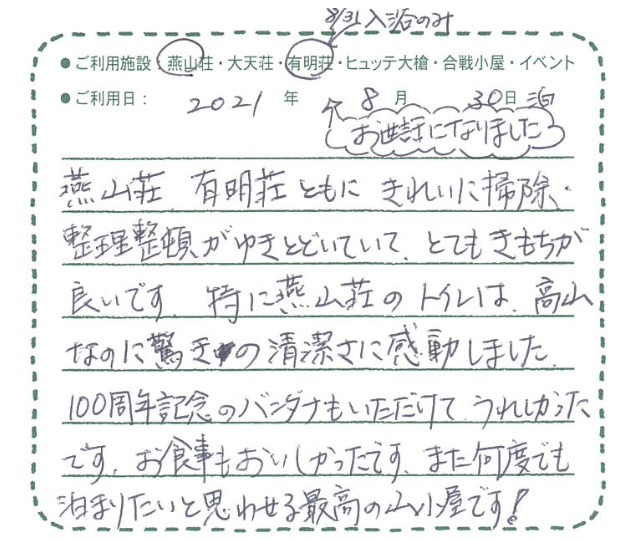 8/31入浴のみ
●ご利用施設:燕山荘・大天荘・有明荘・ヒュッテ大槍・合戦小屋・イベント
●ご利用日: 2021 年 8月 30日 泊
お世話になりました
燕山荘、有明荘ともに きれいに掃除、
整理整頓がゆきとどいていて、とてもきもちが
良いです。特に燕山荘のトイレは、高山
なのに驚きの清潔さに感動しました。
100周年記念のバンダナもいただけて、うれしかった
です。お食事もおいしかったです。また何度でも
泊まりたいと思わせる最高の山小屋です!